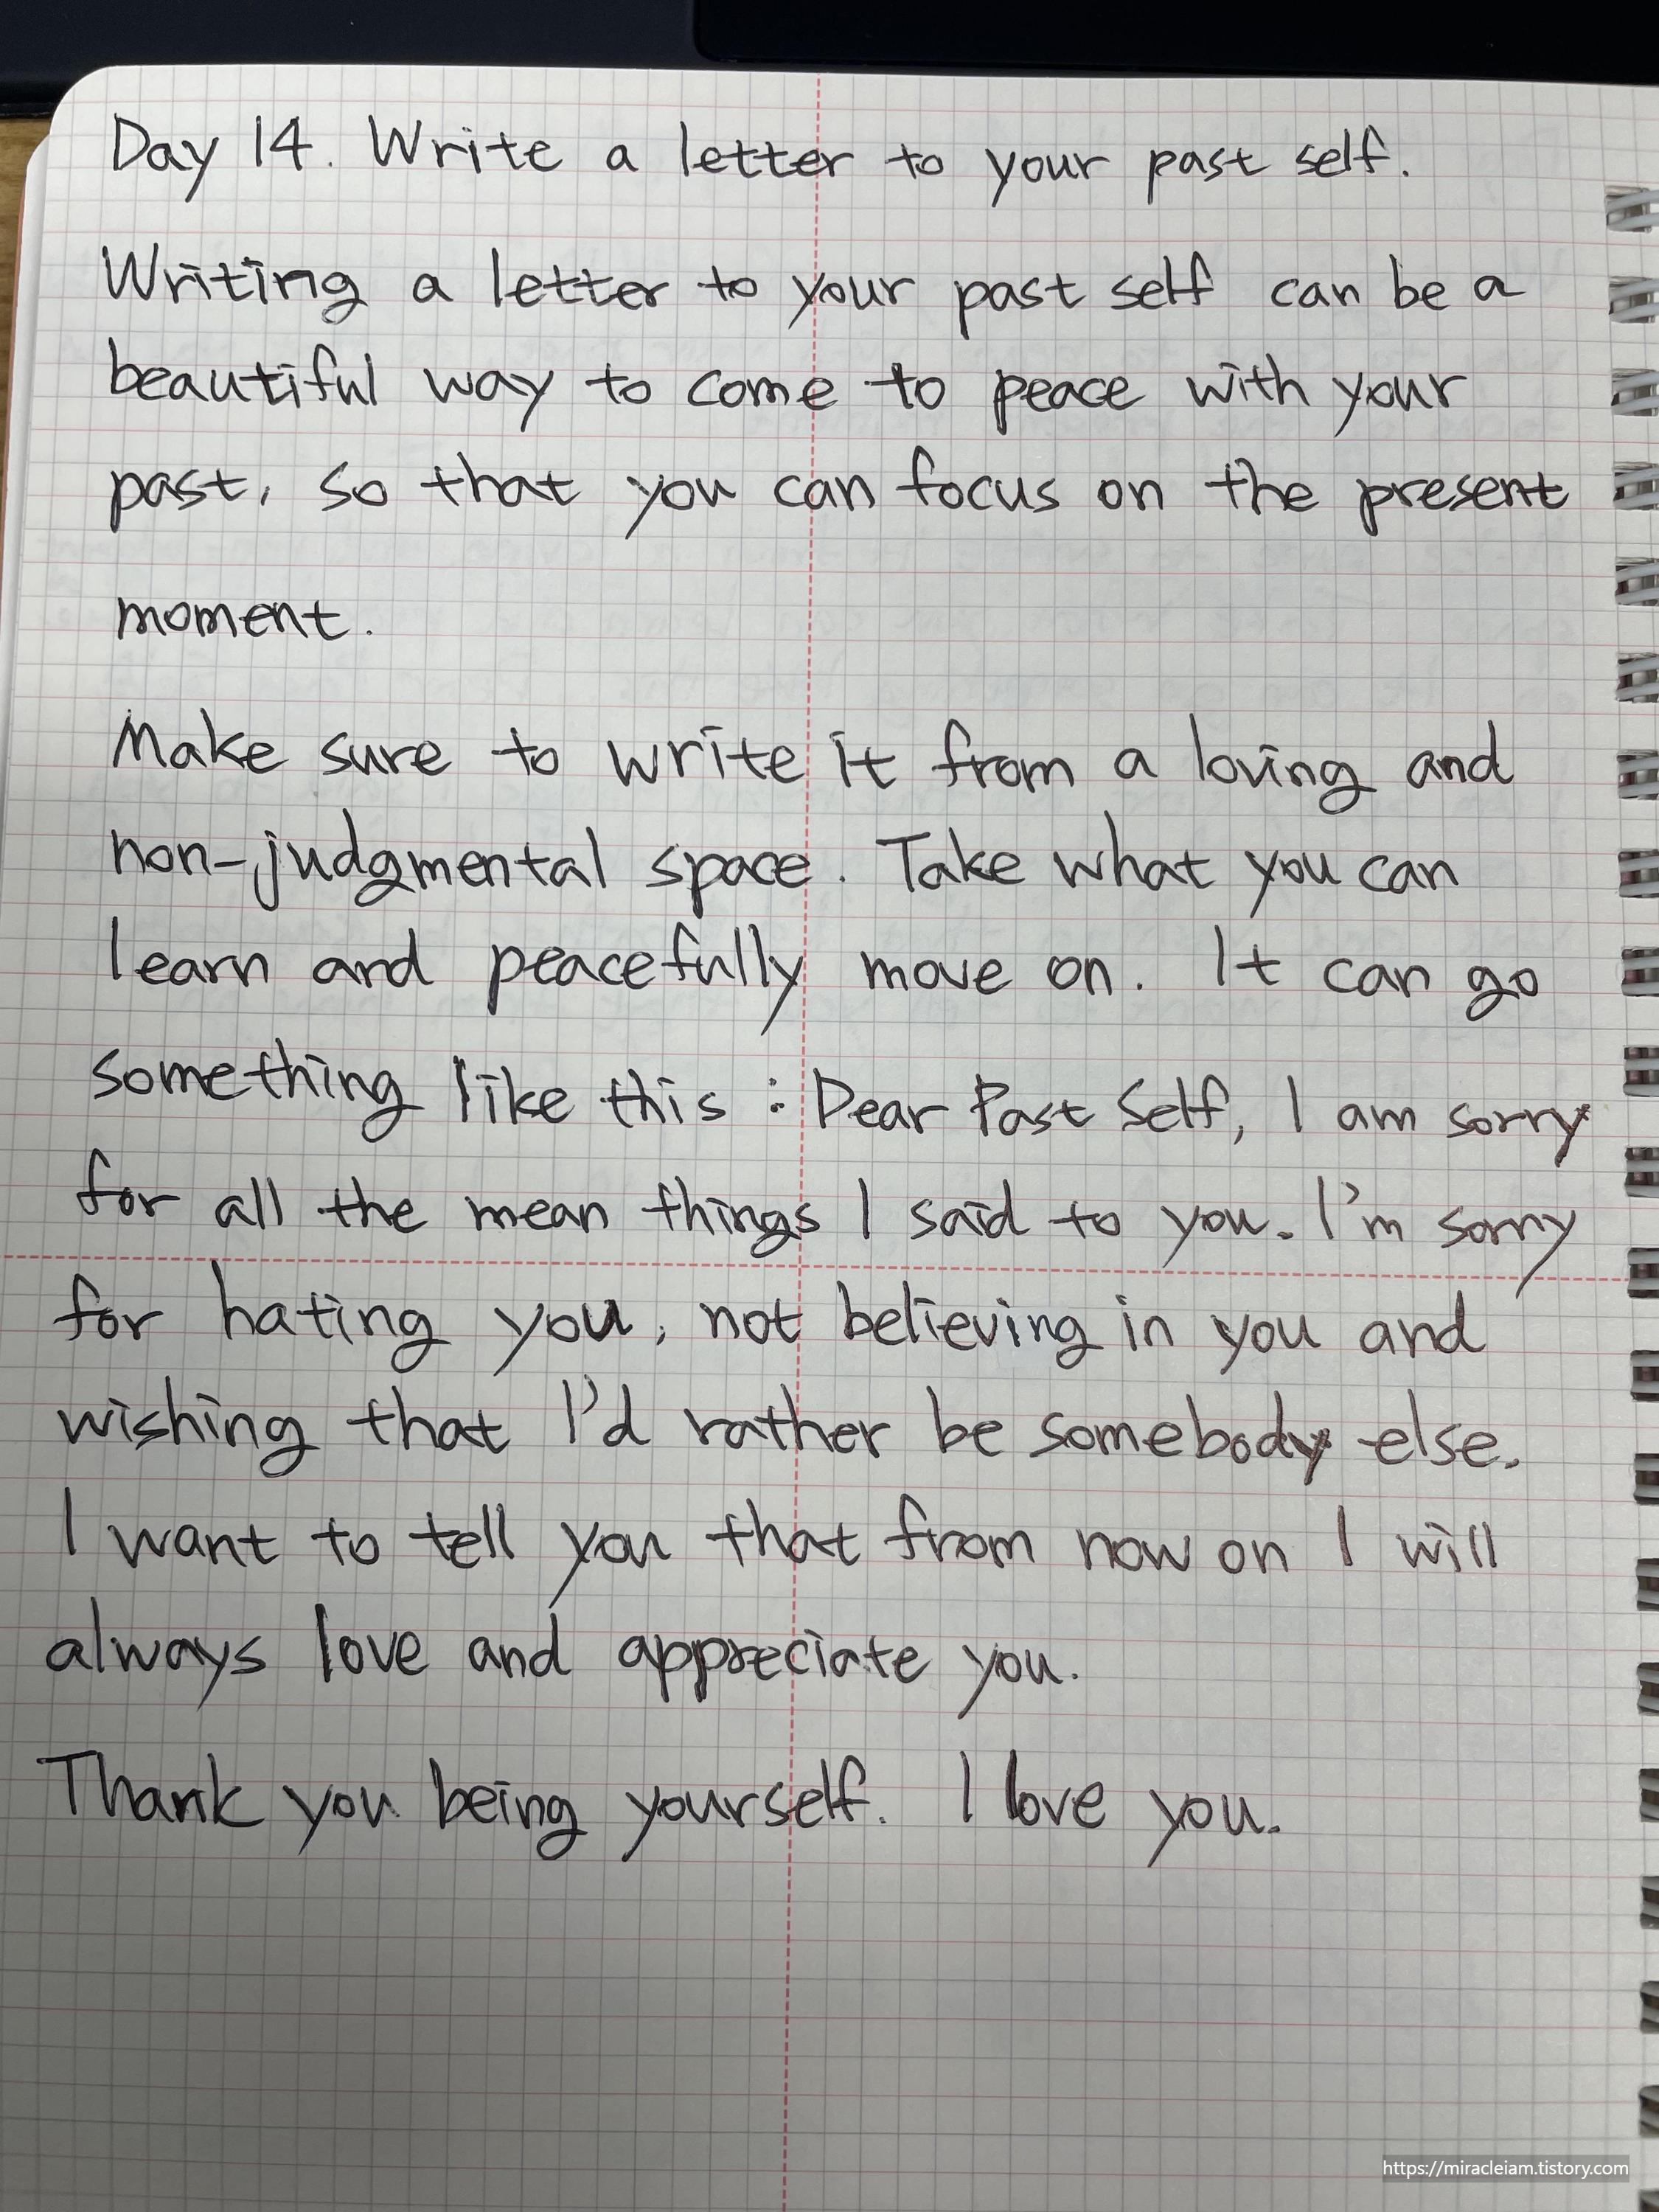 Day 14. Write a letter to your past self.
Writing a letter to your past self can be a
beautiful way to come to peace with your
past, so that you can focus on the present
moment.
Make sure to write it from a loving and
non-judgmental space. Take what you can
learn and peacefully move on. It can go
something like this : Dear Past Self, I am sorry
for all the mean things I said to you. I'm sorry
for hating you, not believing in you and
wishing that I'd rather be somebody else.
I want to tell you that from now on I will
always love and appreciate you.
Thank you being yourself. I love you.
https://miracleiam.tistory.com